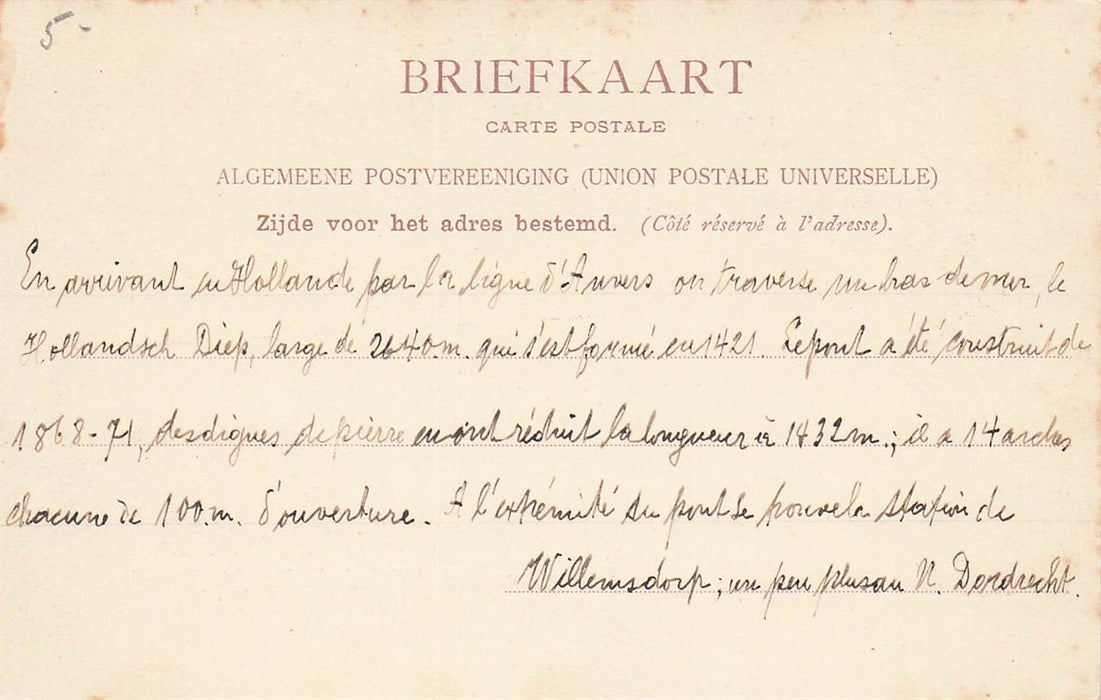 5-
BRIEFKAART
CARTE POSTALE
ALGEMEENE POSTVEREENIGING (UNION POSTALE UNIVERSELLE)
Zijde voor het adres bestemd. (Côté réservé à l'adresse).
En arrivant en Hollande par la ligne d'Anvers on traverse un bras de mer, le
Hollandsch Diep, large de 2640 m. qui s'est formé en 1421. Le pont a été construit de
1868-71, des digues de pierre en ont réduit la longueur à 1432 m.; il a 14 arches
chacune de 100 m. d'ouverture. A l'extrémité du pont se trouve la station de
Willemsdorp; un peu plus au N. Dordrecht.